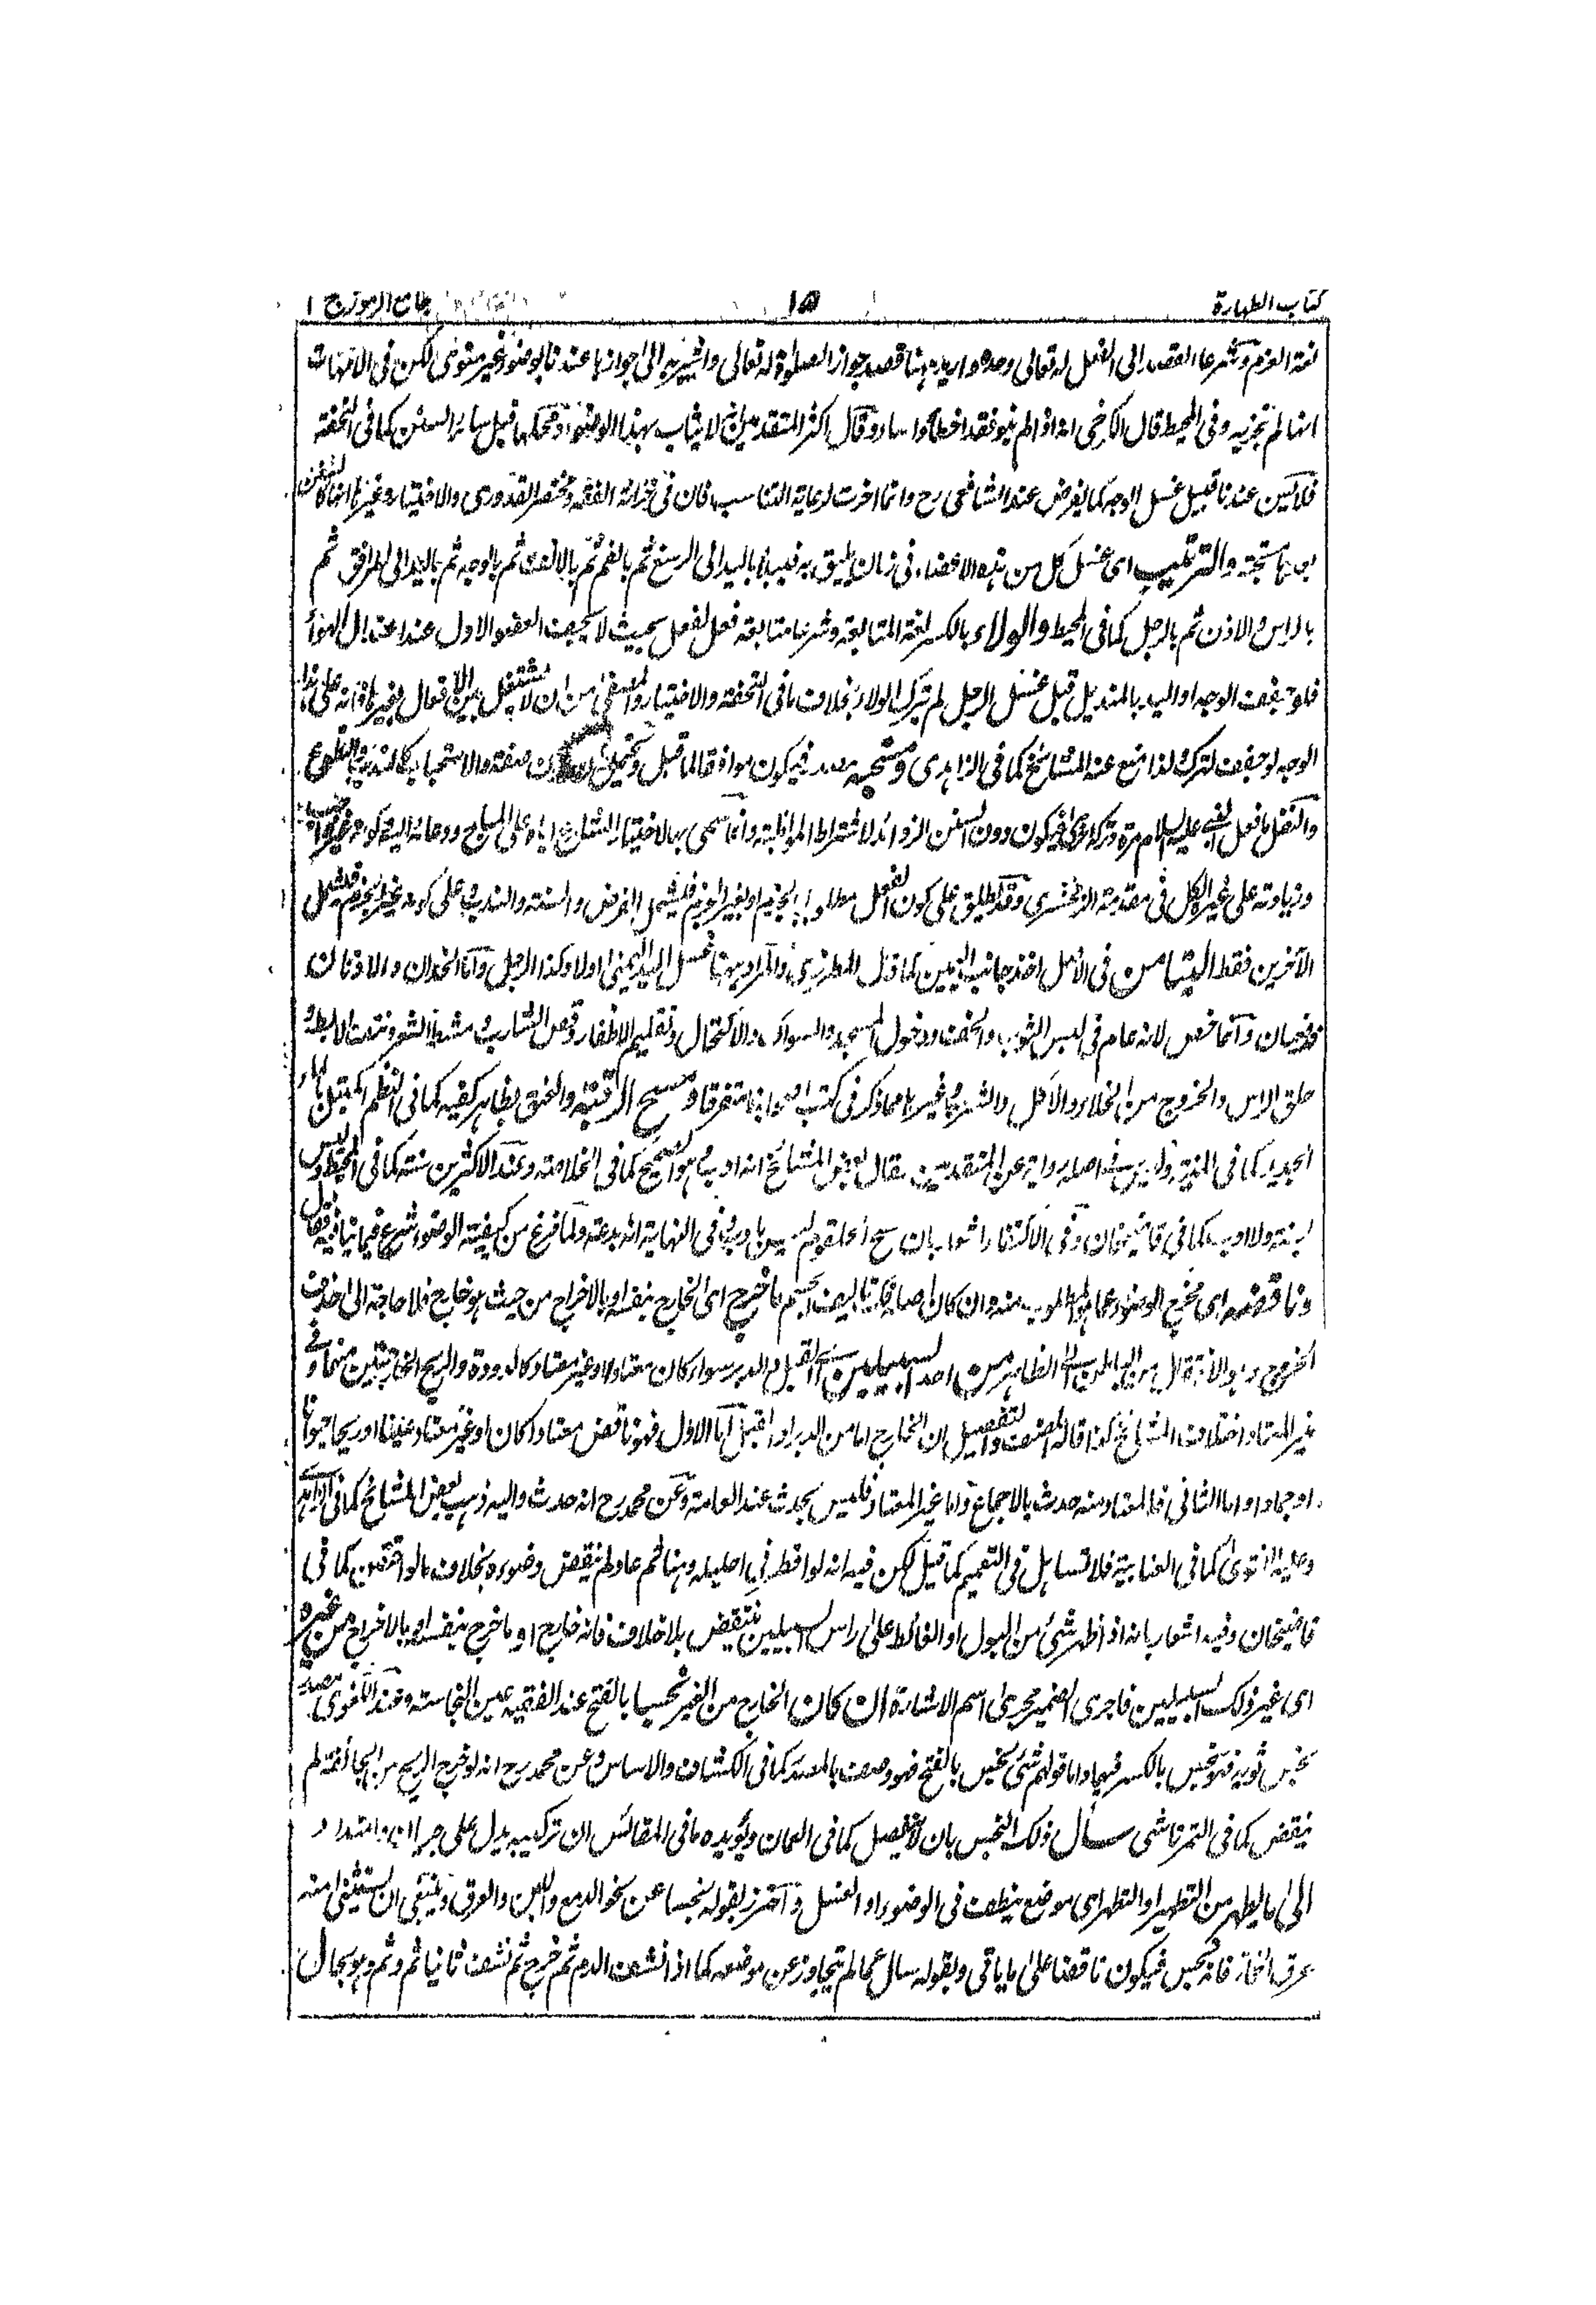 كتاب الطهارة ١٥ جامع الرموز ج ١
لغة العزم وشرعا القصد الى الفعل لله تعالى وحده واريد به هنا قصد جواز الصلوة لله تعالى واشير به الى جوازها عندنا بوضوء غير منوي لكن في الامهات
انها لم تجزيه وفي المحيط قال الكرخي انه اذا لم ينو فقد اخطأ واساء وقال اكثر المتقدمين انه لا يثاب بهذا الوضوء ومحلها قبل سائر السنن كما في التحفة
فلا يسن عندنا قبيل غسل الوجه كما يفرض عند الشافعي رح وانما اخرت لرعاية التناسب فان في خزانة الفقه ومختصر القدوري والاختيار وغيرها
مستحبة والترتيب اي غسل كل من هذه الاعضاء في زمان يليق به فيبدأ باليد الى الرسغ ثم بالفم ثم بالانف ثم بالوجه ثم باليد الى المرافق ثم
بالراس والاذن ثم بالرجل كما في المحيط والولاء بالكسر لغة المتابعة وشرعا متابعة فعل لفعل بحيث لا يجف العضو الاول عند اعتدال الهواء
فلو جفف الوجه او اليد بالمنديل قبل غسل الرجل لم يترك الولاء بخلاف ما في التحفة والاختيار والمصفى من ان لا يشتغل بين الافعال بغيرها فانه على هذا
الوجه لو جفف لترك لذا منع عنه المشائخ كما في الزاهدي ومستحبه فيكون موافقا لما قبل صفته والاستحباب كالندب والتطوع
والنفل ما فعل النبي عليه السلام مرة وتركه اخرى فيكون دون السنن الزوائد لاشتراط المواظبة وانما سمي بها لاختيار الشارع اياه على المباح
وزيادته على غير الكل في مقدمة الزمخشري وقد يطلق على كون الفعل مطلوبا بالجزم او بغير الجزم فيشمل الفرض والسنة والندب وعلى كونه بغير الجزم فيشمل
الآخرين فقط التيامن في الاصل اخذ جانب اليمين كما قال المطرزي والمراد ههنا غسل اليد اليمنى اولا وكذا الرجل واما الخدان والاذنان
فيمسحان وانما خص لانه عام في لبس الثوب والخف ودخول المسجد والسواك والاكتحال وتقليم الاظفار وقص الشارب ومشط الشعر ونتف الابط و
حلق الراس والخروج من الخلاء والاكل والشرب وغيرها مما ذكر في كتب متفرقا ومسح الرقبة والعنق بظاهر كفيه كما في النظم
الجديد كما في المنية وليس في اصله رواية عن المتقدمين فقال بعض المشائخ انه ادب هو الصحيح كما في الخلاصة وعند الاكثرين سنة كما في المحيط وليس
بسنة ولا ادب كما في قاضيخان وفي الاكتفاء اشعار بان مسح الحلقوم ليس بادب وفي النهاية انه بدعة ولما فرغ من كيفية الوضوء شرع فيما ينافيه فقال
وناقضه اي مخرج الوضوء عما هو المطلوب منه وان كان اصله ما خرج اي الخارج بنفسه او بالاخراج من حيث هو خارج فلا حاجة الى حذف
الخروج وهو الانتقال من الباطن الى الظاهر من احد السبيلين اي القبل والدبر سواء كان معتادا او غير معتاد كالدودة والريح الخارجتين منهما وفي
غير المعتاد اختلاف المشائخ كذا قاله المصنف والتفصيل ان الخارج اما من الدبر او القبل اما الاول فهو ناقض معتادا كان او غير معتاد عينا او ريحا حيوانا
او جمادا واما الثاني فالمعتاد منه حدث بالاجماع واما غير المعتاد فليس بحدث عند العامة وعن محمد رح انه حدث واليه ذهب بعض المشائخ كما في الزاهدي
وعليه الفتوى كما في العتابية فلا تساهل في التعميم كما قيل لكن فيه انه لو اقطر في احليله دهنا ثم عاد لم ينقض وضوءه بخلاف ما لو احتقن كما في
قاضيخان وفيه اشعار بانه اذا ظهر شئ من البول او الغائط على راس السبيلين ينتقض بلا خلاف فانه خارج او ما خرج بنفسه او بالاخراج من غيره
اي غير ذلك السبيلين فاجرى الضمير مجرى اسم الاشارة ان كان الخارج من الغير نجسا بالفتح عند الفقيه عين النجاسة وعند اللغوي مصدر
نجس ثوبه فهو نجس بالكسر فيهما واما قولهم شئ نجس بالفتح فهو وصف بالمصدر كما في الكشاف والاساس وعن محمد رح انه لو خرج الريح من الجائفة لم
ينقض كما في التمرتاشي سال ذلك النجس بان كما في العمان ويؤيده ما في المقائس ان تركيبه يدل على جريان وامتداد
الى ما يطهر من التطهير او التطهر اي موضع ينظف في الوضوء او الغسل واحترز بقوله نجسا عن نحو الدمع واللبن والعرق وينبغي ان يستثنى منه
عرق فانه نجس فيكون ناقضا على ما ياتي وبقوله سال عما لم يتجاوز عن موضعه كما اذا نشف الدم ثم خرج ثم نشف ثانيا ثم وثم وهو بحال